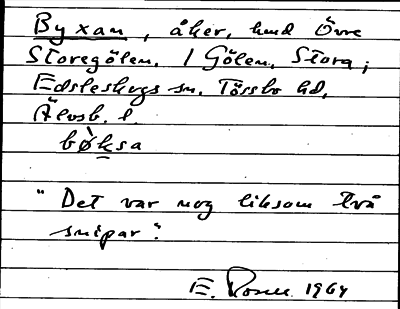 Byxan, åker, hmd Övre
Storegölen. / Gölen, Stora;
Edsleskogs sn. Tössbo hd,
Älvsb. l.
bø̀ksa
"Det var nog liksom två
snipar".
E. Rosen 1964